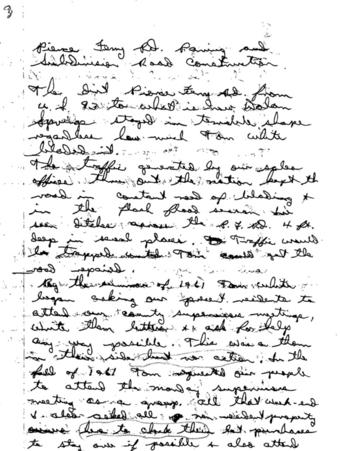 3
Pierce Ferry Rd. Paving and
Subdivision Road Construction
The Dirt Pierce Ferry Rd. from
U.S. 93 to what is now Dolan
Springs stayed in terrible shape
regardless how much Tom White
bladed it.
The traffic generated by our sales
offices thru out the nation kept the
road in constant need of blading &
in the flash flood season
seen ditches across the P.F. Rd. 4 ft.
deep in several places. Traffic would
be trapped until Tom could get the
road repaired.
By the summer of 1961 Tom White
began asking our residents to
attend our county supervisors meetings,
write them letters & ask for help
any way possible. This was a thorn
in their side but no action. In the
fall of 1961 Tom requested our people
to attend the monday supervisors
meeting as a group. all that week-end
& also asked all non resident property
owners to check their lot purchases
to stay over if possible & also attend